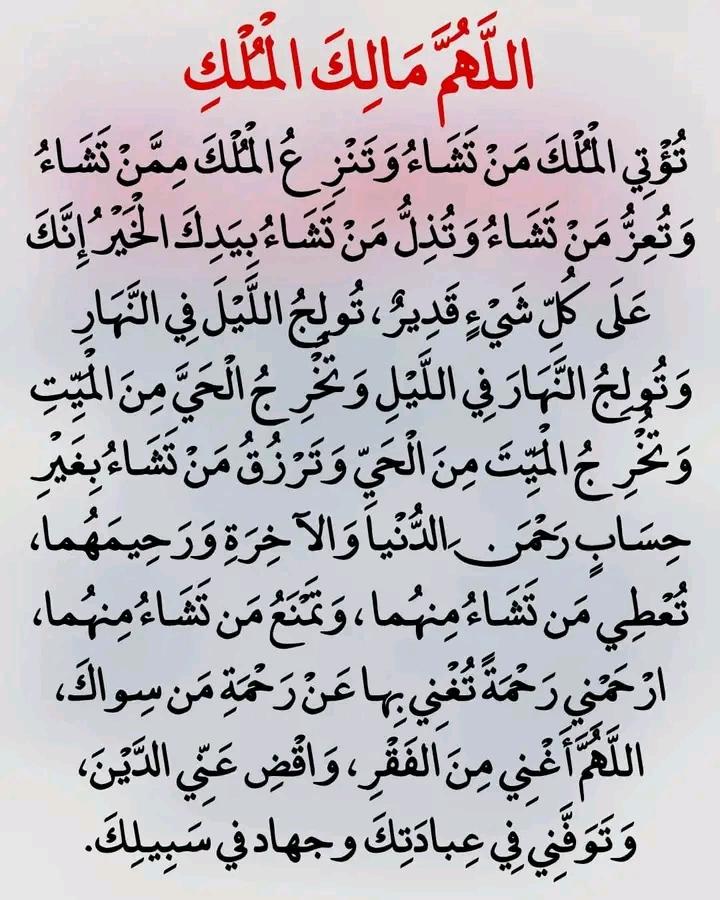 اللَّهُمَّ مَالِكَ الْمُلْكِ
تُؤْتِي الْمُلْكَ مَنْ تَشَاءُ وَتَنْزِعُ الْمُلْكَ مِمَّنْ تَشَاءُ
وَتُعِزُّ مَنْ تَشَاءُ وَتُذِلُّ مَنْ تَشَاءُ بِيَدِكَ الْخَيْرُ إِنَّكَ
عَلَى كُلِّ شَيْءٍ قَدِيرٌ، تُولِجُ اللَّيْلَ فِي النَّهَارِ
وَتُولِجُ النَّهَارَ فِي اللَّيْلِ وَتُخْرِجُ الْحَيَّ مِنَ الْمَيِّتِ
وَتُخْرِجُ الْمَيِّتَ مِنَ الْحَيِّ وَتَرْزُقُ مَنْ تَشَاءُ بِغَيْرِ
حِسَابٍ رَحْمَن َالدُّنْيا وَالآخِرَةِ وَرَحِيمَهُما،
تُعْطِي مَن تَشَاءُ مِنهُما، وَتَمْنَعُ مَن تَشَاءُ مِنهُما،
ارْحَمْنِي رَحْمَةً تُغْنِي بِها عَنْ رَحْمَةِ مَن سِواكَ،
اللَّهُمَّ أَغْنِي مِنَ الفَقْرِ، وَاقْضِ عَنِّي الدَّيْنَ،
وَتَوَفَّنِي فِي عِبادَتِكَ وجهاد في سَبِيلِكَ.